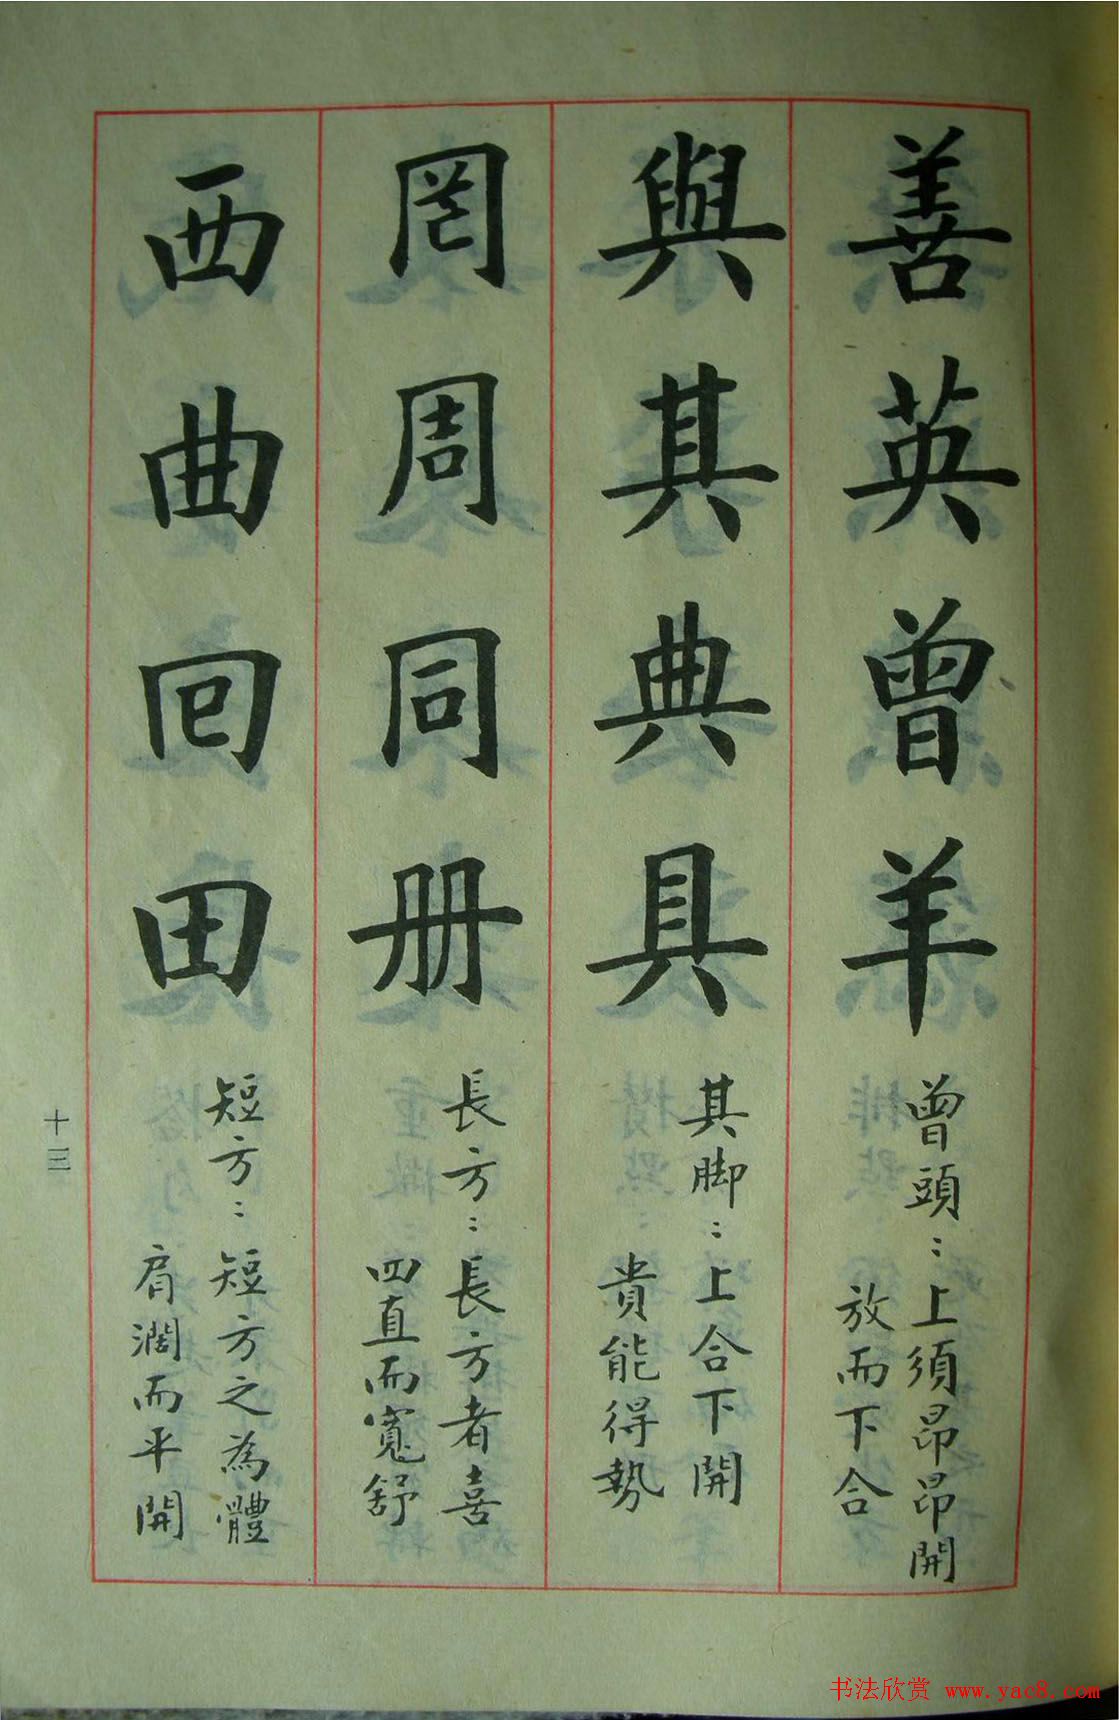 善英曾羊
曾頭：上須昂昂開
放而下合
與其典具
其脚：上合下開
貴能得勢
罔周同册
長方：長方者喜
四直而寬舒
西曲回田
短方：短方之為體
肩濶而平開
十三
书法欣赏 www.yac8.com